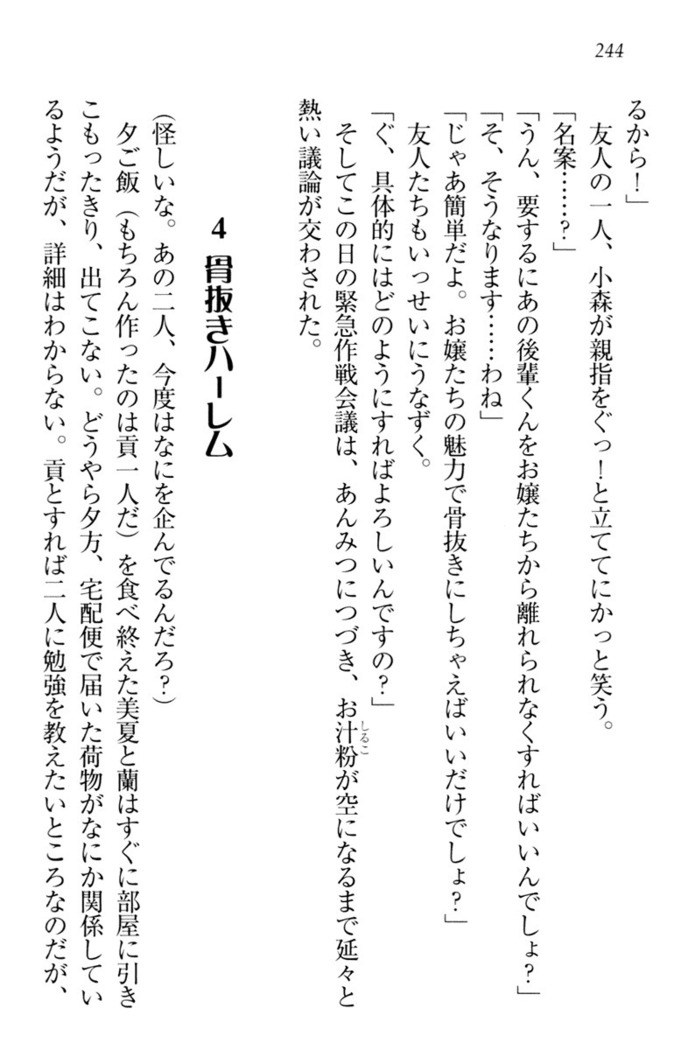 244
るから！」
友人の一人、小森が親指をぐっ！と立ててにかっと笑う。
「名案……？」
「うん、要するにあの後輩くんをお嬢たちから離れられなくすればいいんでしょ？」
「そ、そうなります……わね」
「じゃあ簡単だよ。お嬢たちの魅力で骨抜きにしちゃえばいいだけでしょ？」
友人たちもいっせいにうなずく。
「ぐ、具体的にはどのようにすればよろしいんですの？」
そしてこの日の緊急作戦会議は、あんみつにつづき、お汁粉が空になるまで延々と
しるこ
熱い議論が交わされた。
4 骨抜きハーレム
（怪しいな。あの二人、今度はなにを企んでるんだろ？）
夕ご飯（もちろん作ったのは貢一人だ）を食べ終えた美夏と蘭はすぐに部屋に引き
こもったきり、出てこない。どうやら夕方、宅配便で届いた荷物がなにか関係してい
るようだが、詳細はわからない。貢とすれば二人に勉強を教えたいところなのだが、